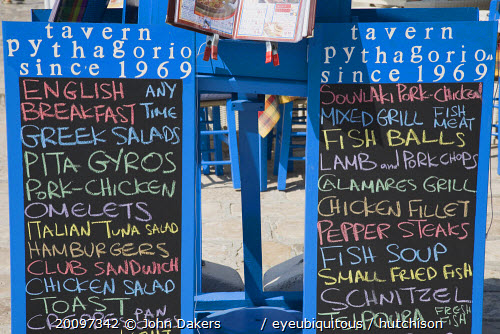 tavern
pythagorio
since 1969
ENGLISH ANY
BREAKFAST TIME
GREEK SALADS
PITA GYROS
PORK-CHICKEN
OMELETS
ITALIAN TUNA SALAD
HAMBURGERS
CLUB SANDWICH
CHICKEN SALAD
TOAST
tavern
pythagorio
since 1969
SOUVLAKI PORK-CHICKEN
MIXED GRILL FISH MEAT
FISH BALLS
LAMB AND PORK CHOPS
CALAMARES GRILL
CHICKEN FILLET
PEPPER STEAKS
FISH SOUP
SMALL FRIED FISH
SCHNITZEL
FRESH
20097342 © John Dakers / eyeubiquitous / hutchison